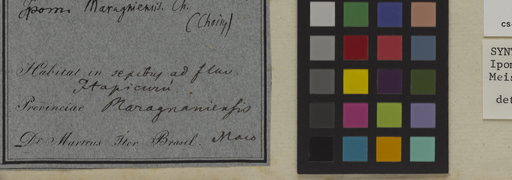 Ipom Maragniensis Ch.
(Choisy)
Habitat in sepibus ad fluv.
Itapicuru
Provinciae Maragnaniensis
Dr Martius Iter Brasil. Maio
cs
SYN
Ipom
Meis
det